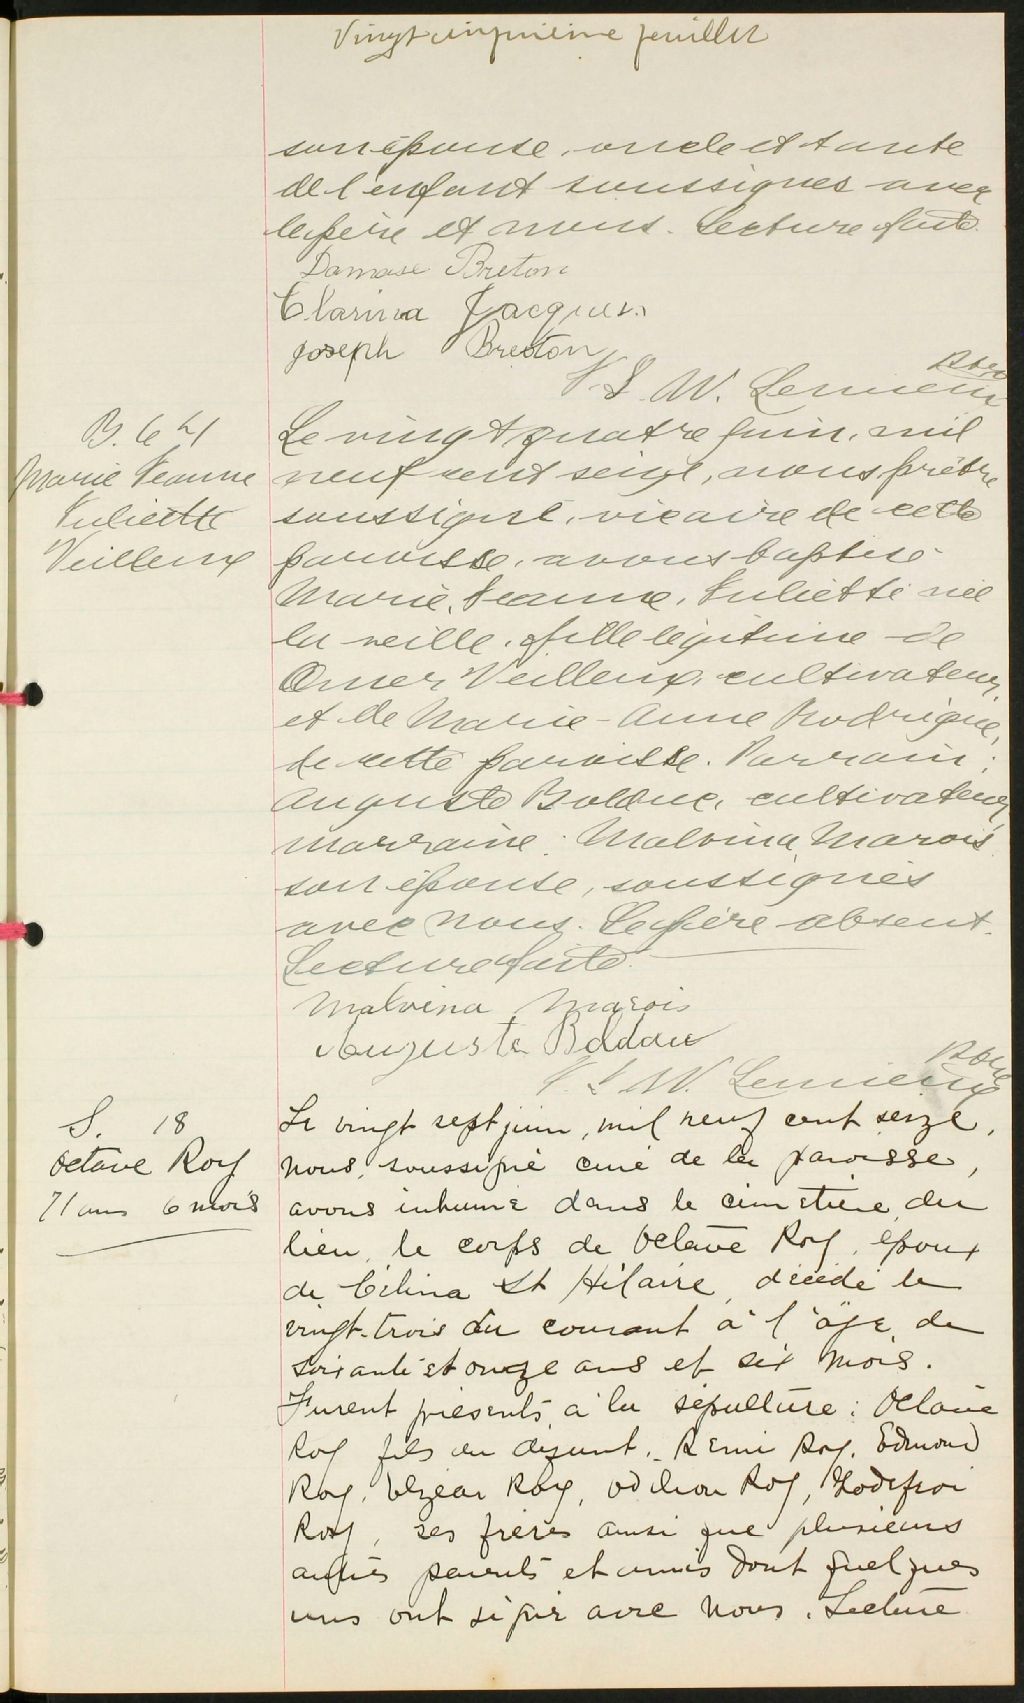 Vingt cinquième feuillet
son épouse, oncle et tante
de l'enfant soussignés avec
le père et nous. Lecture faite.
Damase Breton
Clarina Jacques
Joseph Breton
J. S. W. Lemieux Ptre
B.
Marie Jeanne
Juliette
Veilleux
Le vingt quatre juin, mil
neuf cent seize, nous prêtre
soussigné, vicaire de cette
paroisse, avons baptisé
Marie, Jeanne, Juliette née
la veille, fille légitime de
Omer Veilleux, cultivateur,
et de Marie-Anne Rodrigue,
de cette paroisse. Parrain :
Auguste Bolduc, cultivateur,
marraine : Malvina Marois
son épouse, soussignés
avec nous. Le père absent.
Lecture faite.
Malvina Marois
Auguste Bolduc
J. S. W. Lemieux Ptre
S. 18
Octave Roy
71 ans 6 mois
Le vingt sept juin, mil neuf cent seize,
nous, soussigné curé de la paroisse,
avons inhumé dans le cimetière du
lieu, le corps de Octave Roy, époux
de Célina St Hilaire, décédé le
vingt-trois du courant à l'âge de
soixante et onze ans et six mois.
Furent présents à la sépulture : Octave
Roy fils du défunt, Rémi Roy, Edmond
Roy, Elzéar Roy, Odilon Roy, Godefroi
Roy, ses frères ainsi que plusieurs
autres parents et amis dont quelques
uns ont signé avec nous. Lecture